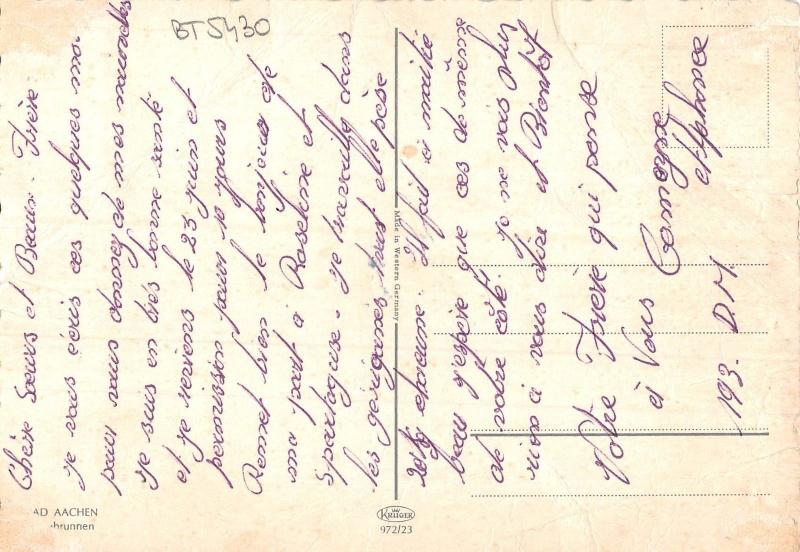 BT5430
Chère Sœurs et Beaux-Frère.
je vous écris ces quelques mo
pour vous donney de mes nouvelles
je suis en très bonne santé
et je reviens le 23 juin et
permission pour 10 jours
Remet bien le bonjour de
ma part à Roseline et
je travailly dans
les
Il fait ci
beau j'espère que ces de même
de votre côté. je ne vais plus
rien a vous dire et Bientôt
Votre Frère qui pense
à Vous
193. D.M.
Made in Western Germany
AD AACHEN
brunnen
KRÜGER
972/23